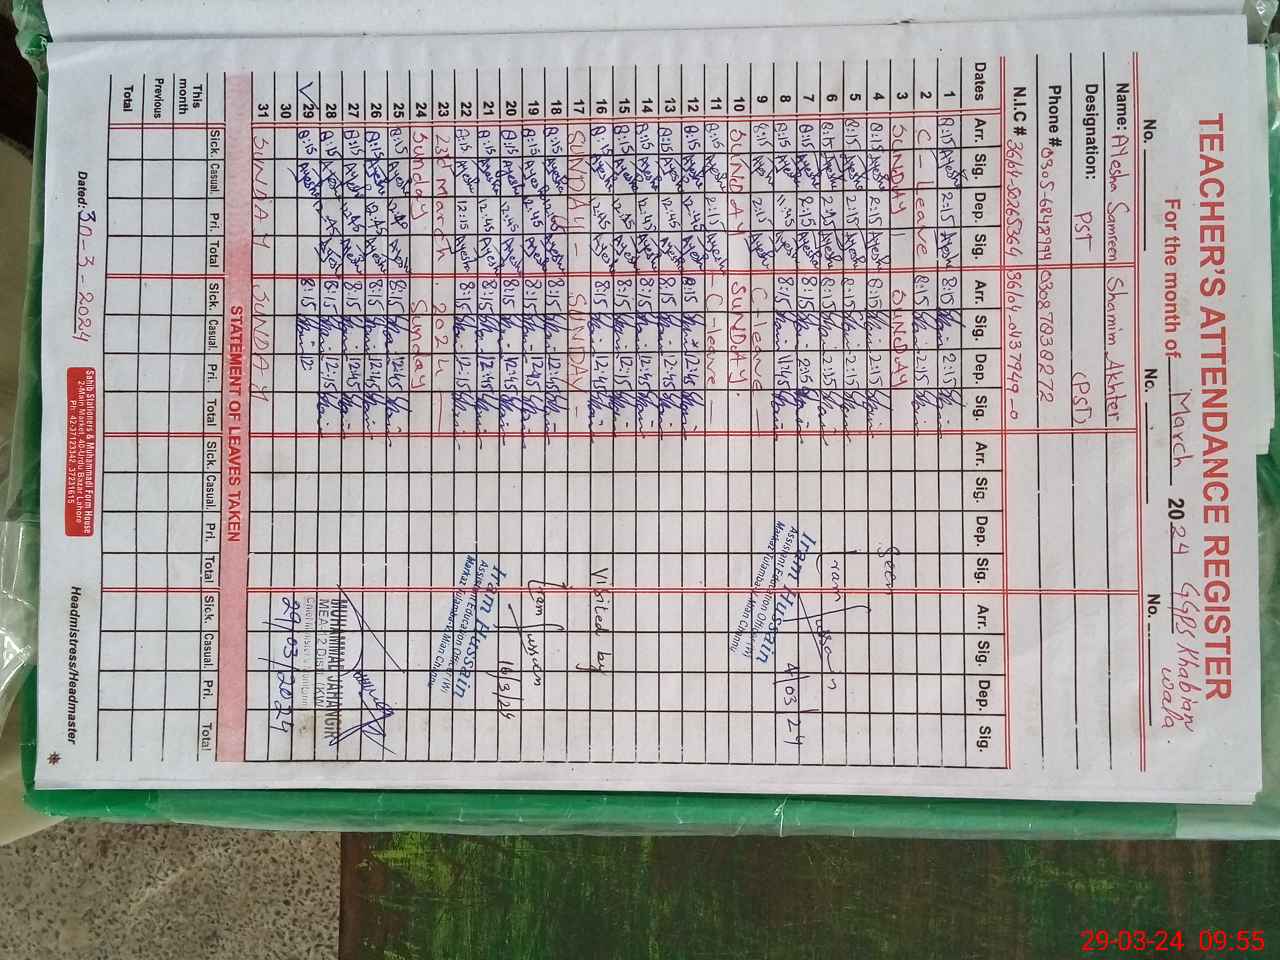 TEACHER'S ATTENDANCE REGISTER
For the month of March 2024 GGPS Khabian wala.
No. No. No.
Name: Ayesha Samreen Shamim Akhter
Designation: PST (PST)
Phone # 0308 7030272
N.I.C #
Dates Arr. Sig. Dep. Sig. Arr. Sig. Dep. Sig. Arr. Sig. Dep. Sig. Arr. Sig. Dep. Sig.
1 8:15 Ayesha 2:15 Ayesha 8:15 2:15
2 C - Leave 8:15 2:15
3 SUNDAY SUNDAY
4 8:15 Ayesha 2:15 Ayesha 8:15 2:15 Seen
5 8:15 Ayesha 2:15 Ayesha 8:15 2:15
6 8:15 Ayesha 2:15 Ayesha 8:15 2:15 Iram Hussain
7 8:15 Ayesha 2:15 Ayesha 8:15 2:15 4/03/24
8 8:15 Ayesha 11:45 Ayesha 8:15 11:45 Iram Hussain
Assistent Education Officer (W)
Markaz Tulambah, Mian Channu
9 8:15 Ayesha 2:15 Ayesha C-leave
10 SUNDAY SUNDAY.
11 8:15 Ayesha 2:15 Ayesha C-leave
12 8:15 Ayesha 12:45 Ayesha 8:15 12:45
13 8:15 Ayesha 12:45 Ayesha 8:15 12:45
14 8:15 Ayesha 12:45 Ayesha 8:15 12:45
15 8:15 Ayesha 12:45 Ayesha 8:15 12:15
16 8:15 Ayesha 12:45 Ayesha 8:15 12:45 Visited by
17 SUNDAY - SUNDAY -
18 8:15 Ayesha 12:45 Ayesha 8:15 12:45
19 8:15 Ayesha 12:45 Ayesha 8:15 12:45 Iram Hussain
20 8:15 Ayesha 12:45 Ayesha 8:15 12:45 16/3/24
21 8:15 Ayesha 12:45 Ayesha 8:15 12:45 Iram Hussain
22 8:15 Ayesha 12:15 Ayesha 8:15 12:15 Assistent Education Officer (W)
Markaz Tulambah, Mian Channu
23 23rd march . 2024
24 Sunday Sunday
25 8:15 Ayesha 12:45 Ayesha 8:15 12:45
26 8:15 Ayesha 12:45 Ayesha 8:15 12:45
27 8:15 Ayesha 12:45 Ayesha 8:15 12:45
28 8:15 12:45 Ayesha 8:15 12:15 MUHAMMAD JAHANGIR
29 8:15 Ayesha 8:15 12:
30 29/03/2024
31 SUNDAY SUNDAY
STATEMENT OF LEAVES TAKEN
Sick. Casual. Pri. Total Sick. Casual. Pri. Total Sick. Casual. Pri. Total Sick. Casual. Pri. Total
This month
Previous
Total
Dated: 30-3-2024
Sahib Stationers & Muhammadi Form House
2-Main Market, 40-Urdu Bazar Lahore
Ph: 42-37123342, 37231615
Headmistress/Headmaster
29-03-24 09:55